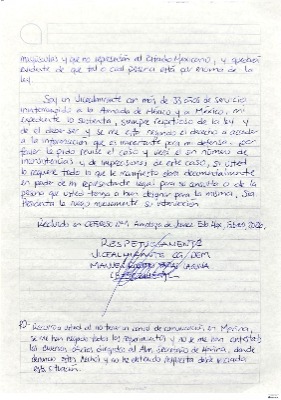 mayusculas y que no representan al Estado Mexicano, y quedará
evidente de que tal o cual persona está por encima de la
ley.
Soy un Vicealmirante con más de 33 años de servicio
ininterrumpido a la Armada de México y a México, mi
expediente lo sustenta, siempre respetuoso de la ley y
de el deber ser y se me está negando el derecho a acceder
a la información que es importante para mi defensa. por
favor le pido analice el caso y verá el sin número de
inconsistencias y de imprecisiones de este caso, si usted
lo requiere todo lo que le manifiesto obra documentalmente
en poder de mi representante legal para su consulta o de la
persona que usted tenga a bien designar para la misma, Sra.
Presidenta le ruego nuevamente su intervención
Recluido en CEFERESO No. 1, Almoloya de Juárez, Edo. Mex., Febrero, 2026.
RESPETUOSAMENTE
VICEALMIRANTE CG. DEM.
MANUEL ROBERTO FARIAS LAGUNA
PD- Recurro a usted al no tener un canal de comunicación en Marina,
se me han negado todos los requerimientos y no se me han contestado
los diversos oficios dirigidos al Alm. Secretario de Marina, donde
denuncio estos hechos y no he obtenido respuesta desde iniciada
esta situación.